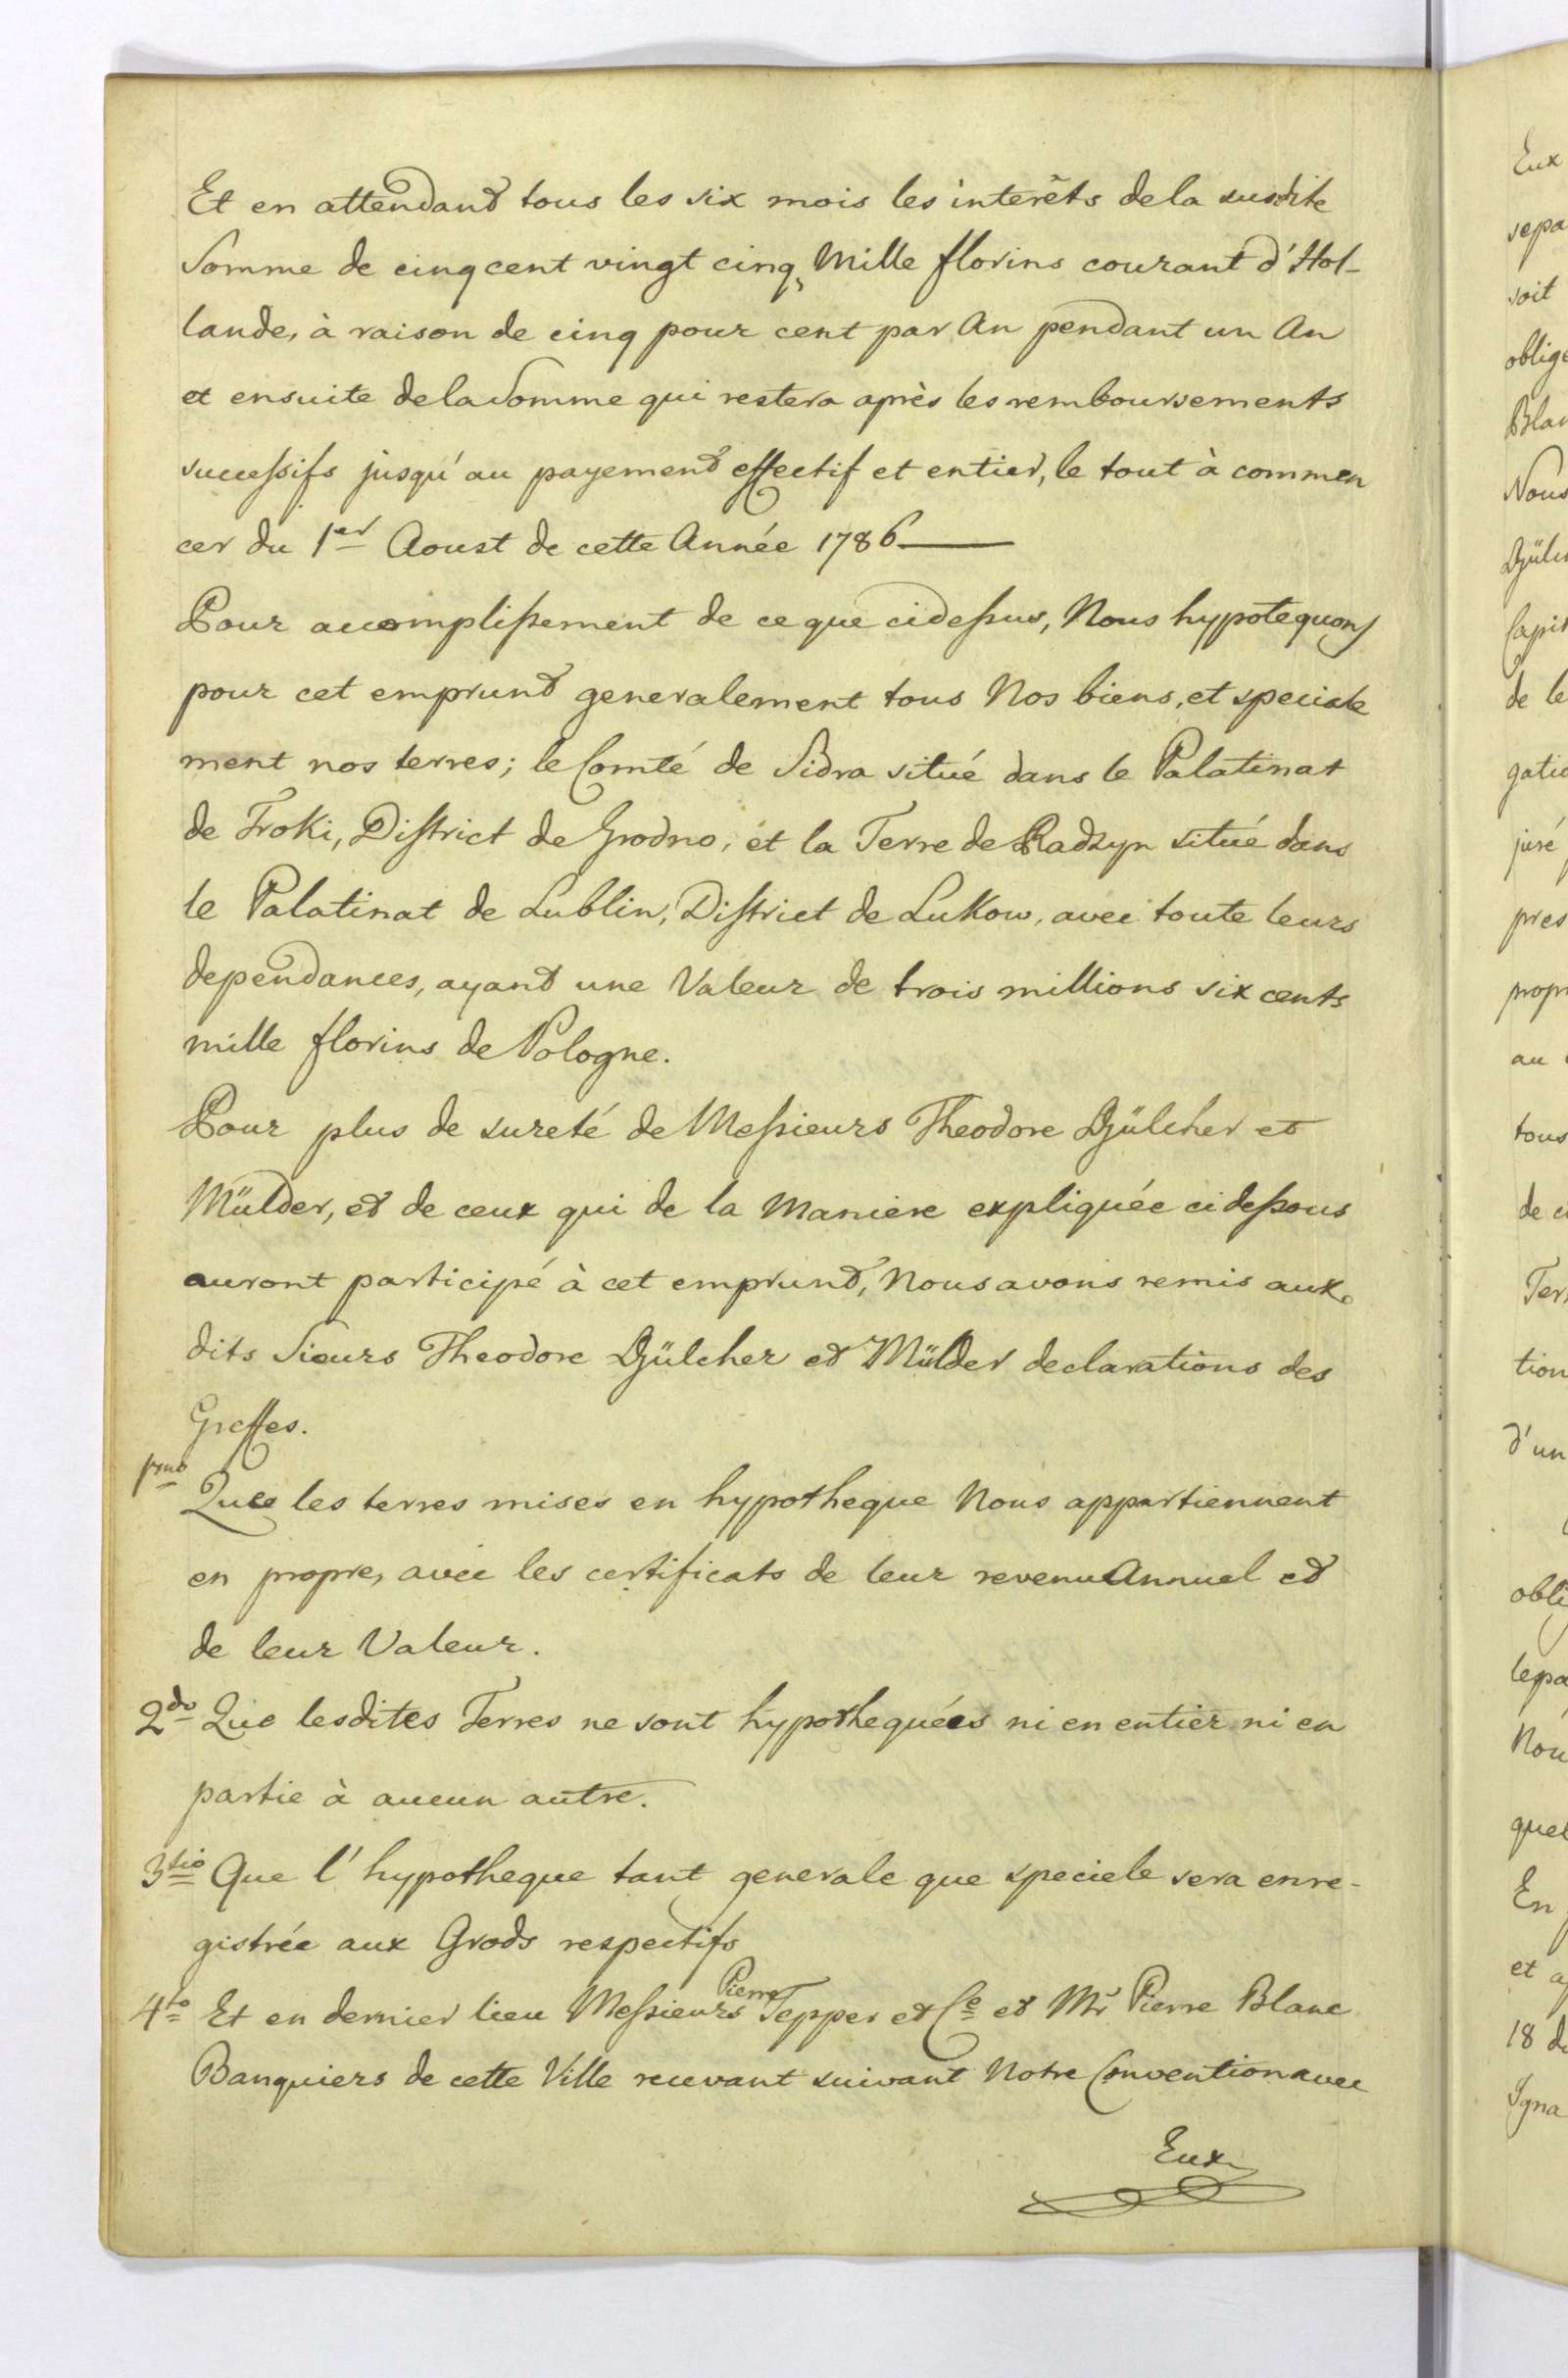 Et en attendant tous les six mois les interêts dela susdite
Somme de cinq cent vingt cinq Mille florins courant d'Hol-
lande, à raison de cinq pour cent par An pendant un An
et ensuite dela Somme qui restera après les remboursements
successifs jusqu'au payement effectif et entier, le tout à commen
cer du 1er Aoust de cette Année 1786
Pour accomplissement de ce que cidessus, Nous hypotequons
pour cet emprunt generalement tous Nos biens, et speciale
ment nos terres; le Comté de Sidra situé dans le Palatinat
de Troki, District de Grodno, et la Terre de Radzyn situé dans
le Palatinat de Lublin, District de Lukow, avec toute leurs
dependances, ayant une Valeur de trois millions six cents
mille florins de Pologne.
Pour plus de sureté de Messieurs Theodore Gülcher et
Mülder, et de ceux qui de la Maniere expliquée cidessous
auront participé à cet emprunt, Nous avons remis aux
dits Sieurs Theodore Gülcher et Mülder declarations des
Greffes.
pmo Que les terres mises en hypotheque Nous appartiennent
en propre, avec les certificats de leur revenu Annuel et
de leur Valeur.
2do Que lesdites Terres ne sont hypothequées ni en entier ni en
partie à aucun autre.
3tio Que l'hypotheque tant generale que speciele sera enre-
gistrée aux Grods respectifs
4to Et en dernier lieu Messieurs Pierre Tepper et Ce et Mr Pierre Blanc
Banquiers de cette Ville recevant suivant Notre Convention avec
Eux
Eux
sepa
soit
oblige
Blan
Nous
Gülc
Capit
de le
gatio
juré
pres
propr
au
tous
de c
Ter
tion
d'un
obli
lepa
Nou
quel
En
et a
18 d
Igna